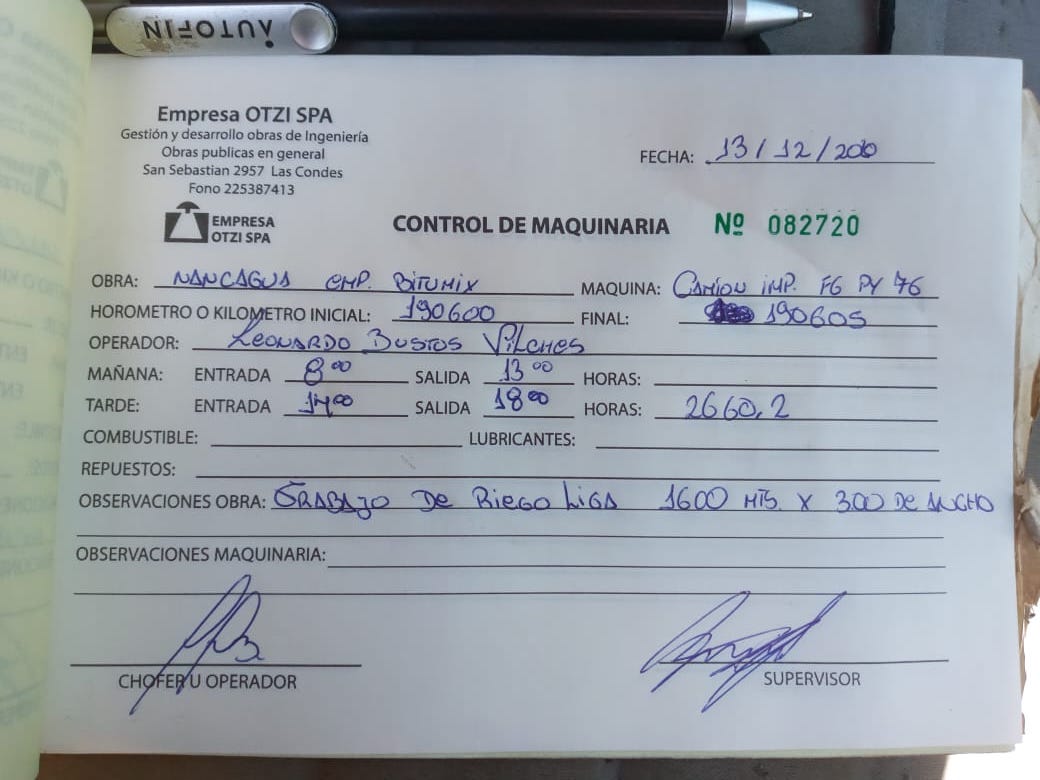 AUTOFIN
Empresa OTZI SPA
Gestión y desarrollo obras de Ingeniería
Obras publicas en general
San Sebastian 2957 Las Condes
Fono 225387413
EMPRESA
OTZI SPA
FECHA: 13/12/200
CONTROL DE MAQUINARIA Nº 082720
OBRA: NANCAGUA EMP. BITUMIX MAQUINA: CAMION IMP. FG PY 76
HOROMETRO O KILOMETRO INICIAL: 190600 FINAL: 190605
OPERADOR: LEONARDO BUSTOS VILCHES
MAÑANA: ENTRADA 8 00 SALIDA 13 00 HORAS:
TARDE: ENTRADA 14 00 SALIDA 18 00 HORAS: 2660.2
COMBUSTIBLE: LUBRICANTES:
REPUESTOS:
OBSERVACIONES OBRA: TRABAJO DE RIEGO LIGA 1600 MTS. X 3.00 DE ANCHO
OBSERVACIONES MAQUINARIA:
CHOFER U OPERADOR SUPERVISOR